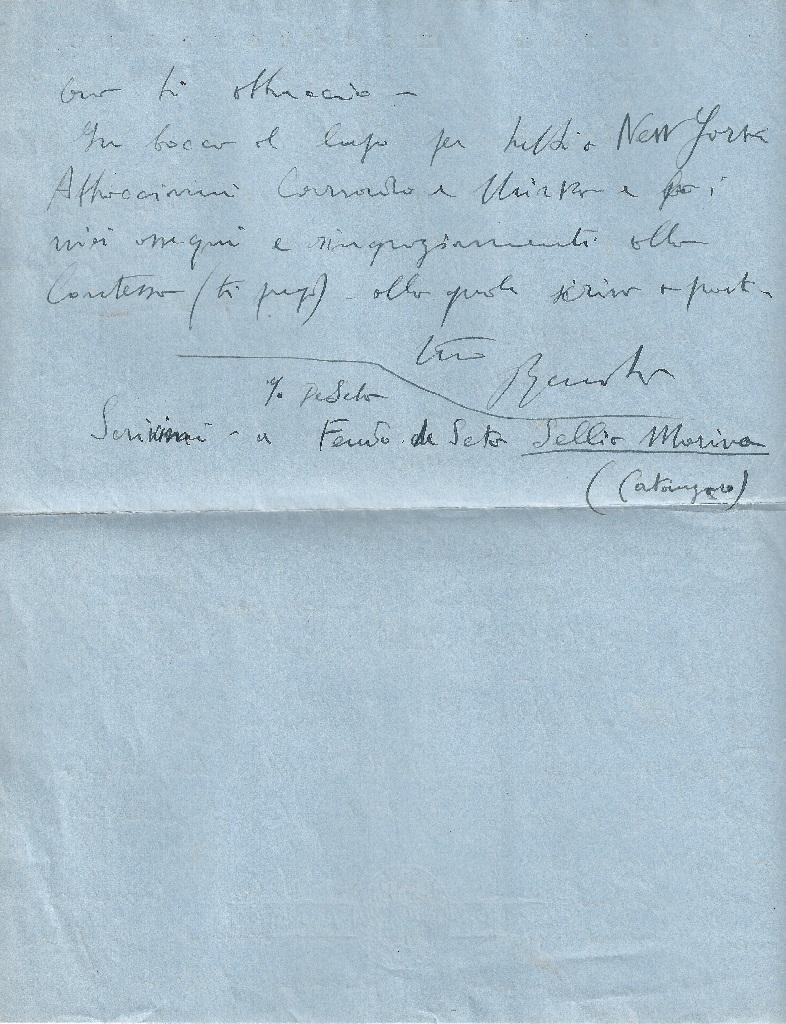 ti abbraccio –
In bocca al lupo per tutti a New York
Abbracciami Corrado e e poi
miei ossequi e ringraziamenti alla
Contessa (ti prego) – alla quale scrivo a parte
tuo
% DeSeta
Scrivimi – a Feudo de Seta Sellia Marina
(Catanzaro)